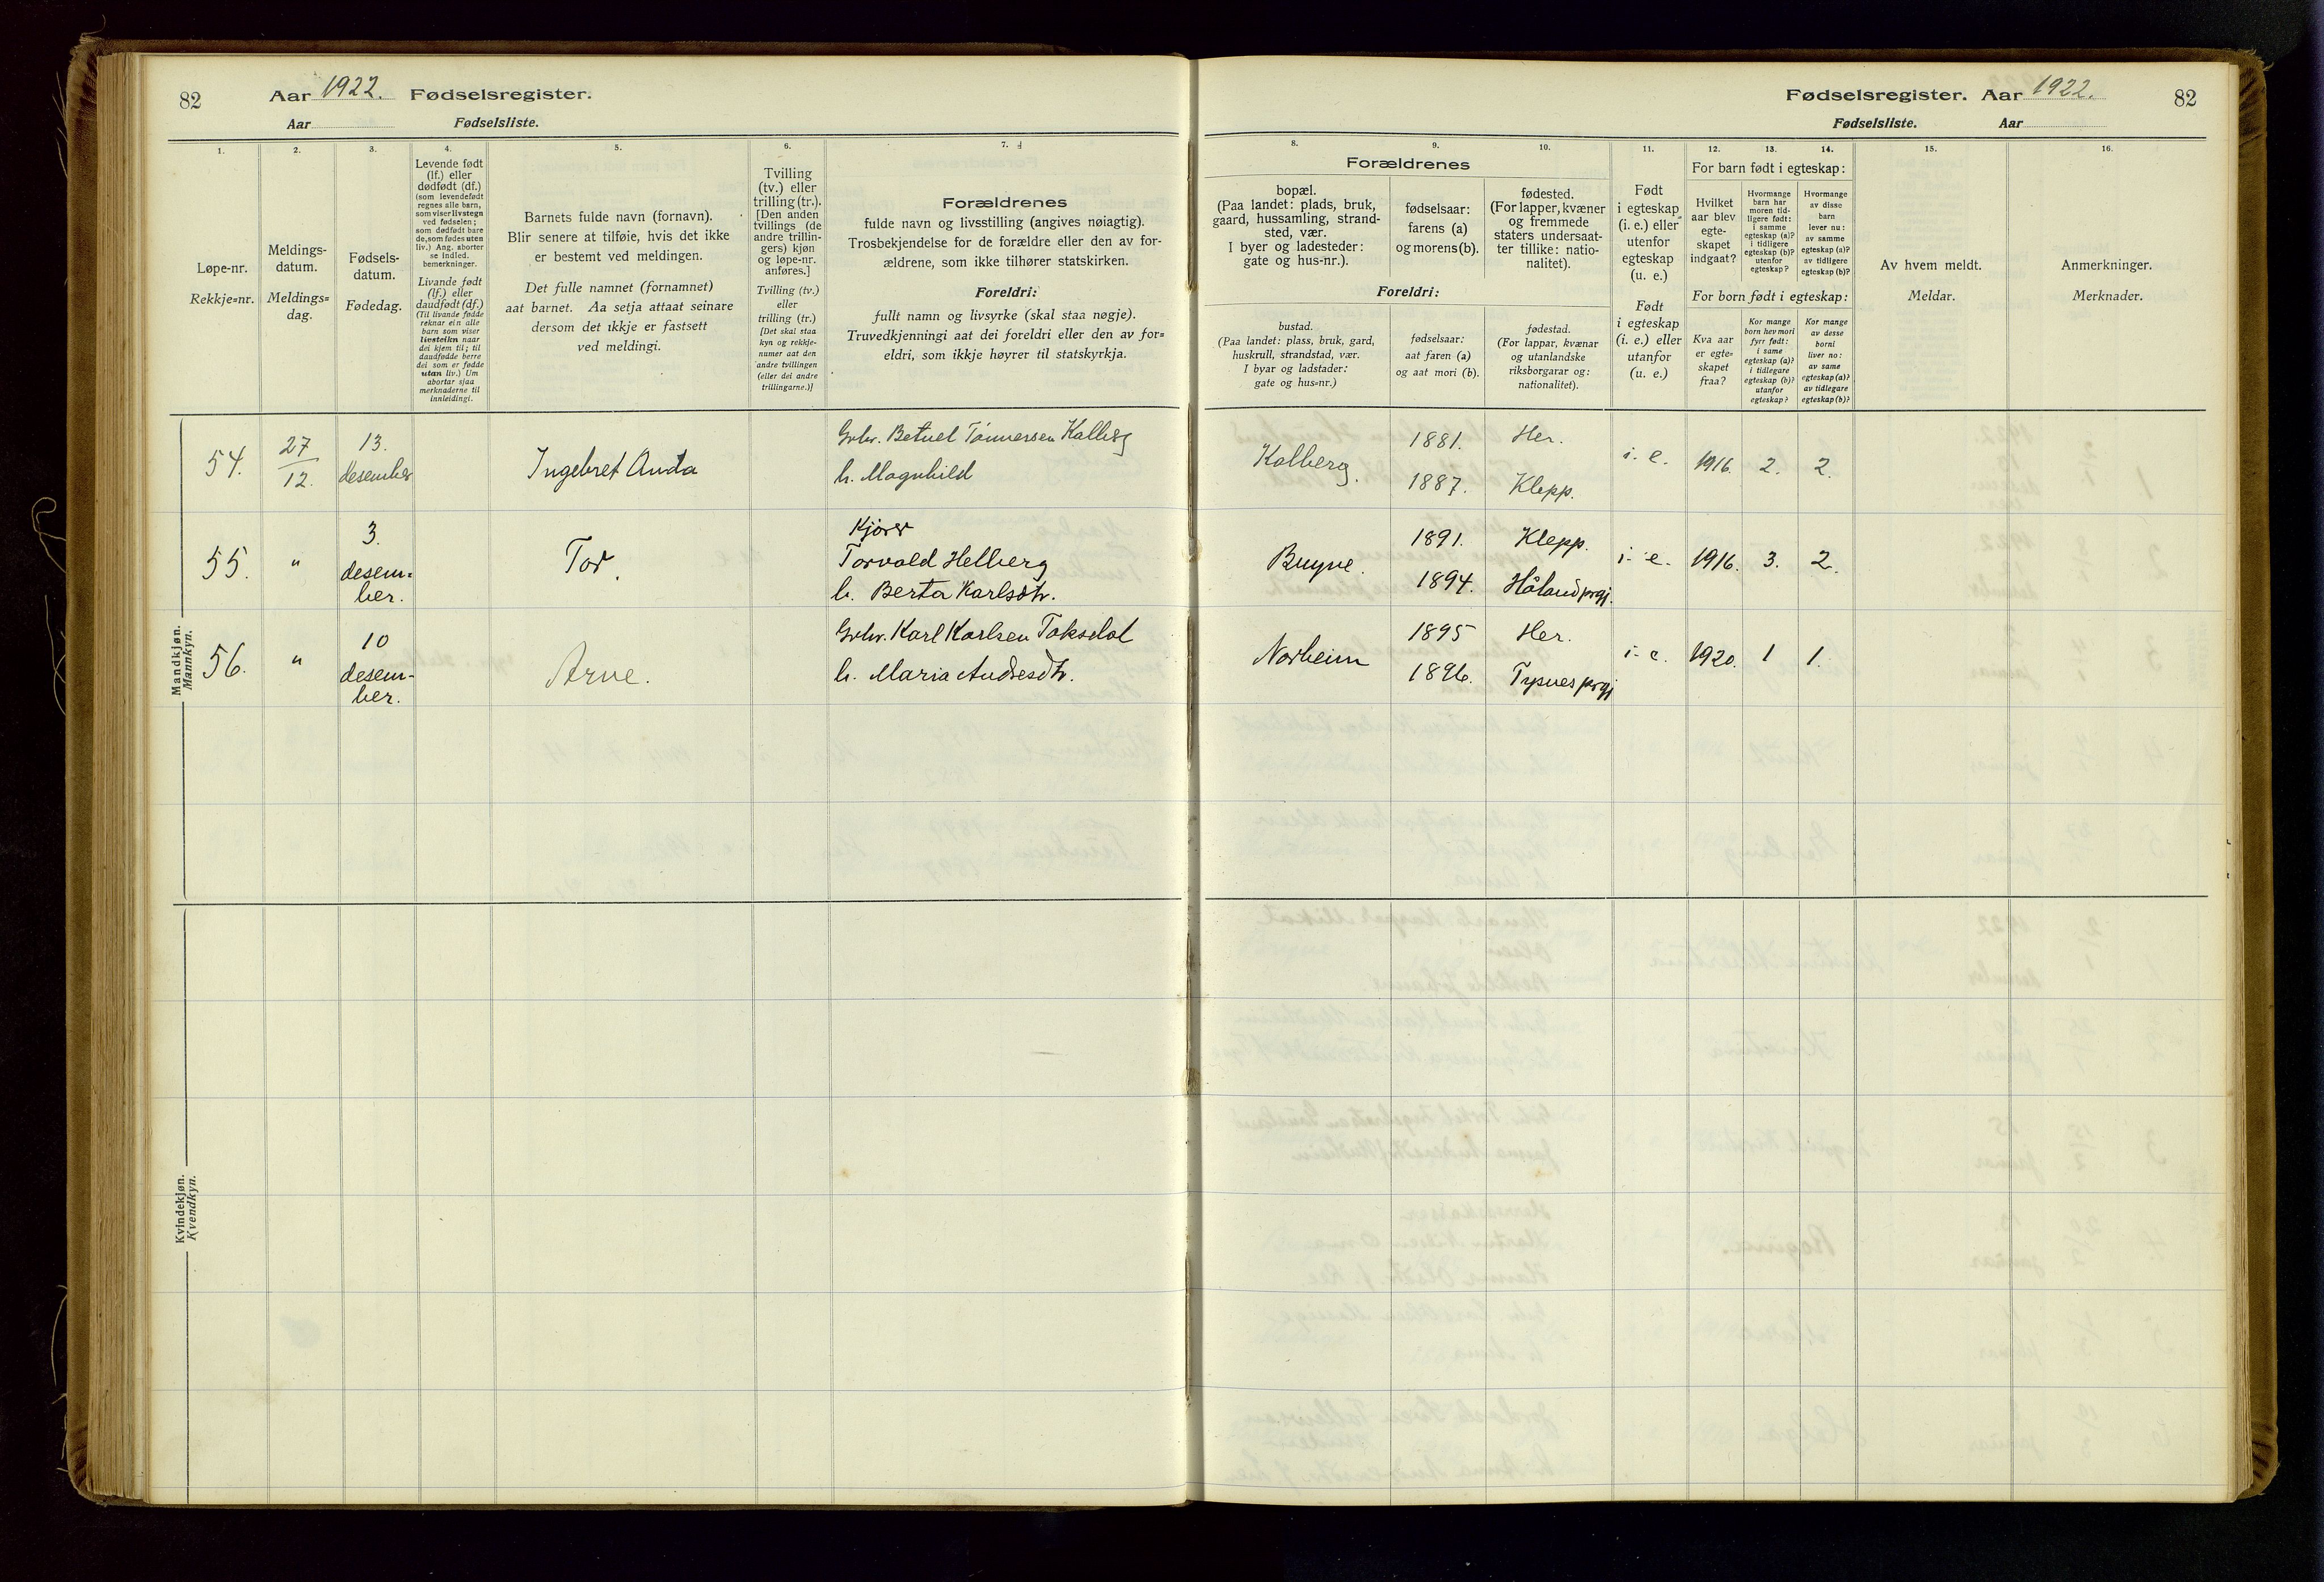 82
Aar 1922. Fødselsregister.
Aar Fødselsliste.
1.
Løpe-nr.
Rekkje-nr.
2.
Meldings-
datum.
Meldings-
dag.
3.
Fødsels-
datum.
Fødedag.
4.
Levende født
(lf.) eller
dødfødt (df.)
(som levendefødt
regnes alle barn,
som viser livstegn
ved fødselen;
som dødfødt bare
de, som fødes uten
liv.) Ang. aborter
se indled.
bemerkninger.
Livande født
(lf.) eller
daudfødt (df.)
(Til livande fødde
reknar ein alle
barn som viser
livsteikn naar
dei kjem til; til
daudfødde berre
dei som er fødde
utan liv.) Um
abortar sjaa
merknaderne til
innleidingi.
5.
Barnets fulde navn (fornavn).
Blir senere at tilføie, hvis det ikke
er bestemt ved meldingen.
Det fulle namnet (fornamnet)
aat barnet. Aa setja attaat seinare
dersom det ikkje er fastsett
ved meldingi.
6.
Tvilling
(tv.) eller
trilling (tr.).
[Den anden
tvillings (de
andre trillin-
gers) kjøn
og løpe-nr.
anføres.]
Tvilling (tv.)
eller
trilling (tr.)
[Det skal staa
kyn og rekkje-
numer aat den
andre tvillingen
(eller dei andre
trillingarne.)]
7.
Forældrenes
fulde navn og livsstilling (angives nøiagtig).
Trosbekjendelse for de forældre eller den av for-
ældrene, som ikke tilhører statskirken.
Foreldri:
fullt namn og livsyrke (skal staa nøgje).
Truvedkjenningi aat dei foreldri eller den av for-
eldri, som ikkje høyrer til statskyrkja.
Mandkjøn.
Mannkyn.
54.
27
12.
13.
desember
Ingebret Anda
Gvbr. Betuel Tønnessen Kalberg
h. Magnhild
55.
"
3.
desem-
ber.
Tor.
Kjører
Torvald Helberg
h. Berta Karlsdtr.
56.
"
10
desem-
ber.
Arne.
Gvbr. Karl Karlsen Taksdal
h. Maria Andresdtr.
Kvindekjøn.
Kvendkyn.
Fødselsregister. Aar 1922.
82
Fødselsliste. Aar
8.
9.
10.
Forældrenes
bopæl.
(Paa landet: plads, bruk,
gaard, hussamling, strand-
sted, vær.
I byer og ladesteder:
gate og hus-nr.).
fødselsaar:
farens (a)
og morens (b).
fødested.
(For lapper, kvæner
og fremmede
staters undersaat-
ter tillike: natio-
nalitet).
Foreldri:
bustad.
(Paa landet: plass, bruk, gard,
huskrull, strandstad, vær.
I byar og ladstader:
gate og hus-nr.)
fødselsaar:
aat faren (a)
og aat mori (b).
fødestad.
(For lappar, kvænar
og utanlandske
riksborgarar og:
nationalitet).
11.
Født
i egteskap
(i. e.) eller
utenfor
egteskap
(u. e.)
Født
i egteskap
(i. e.) eller
utanfor
(u. e.)
12.
13.
14.
For barn født i egteskap:
Hvilket
aar blev
egte-
skapet
indgaat?
Hvormange
barn har
moren tid-
ligere født:
i samme
egteskap (a)?
i tidligere
egteskap (b)?
utenfor
egteskap?
Hvormange
av disse
barn
lever nu:
av samme
egteskap (a)?
av tidligere
egteskap (b)?
For born født i egteskap:
Kva aar
er egte-
skapet
fraa?
Kor mange
born hev mori
fyrr født:
i same
egteskap (a)?
i tidlegare
egteskap (b)?
utanfor
egteskap?
Kor mange
av desse
borni
liver no:
av same
egteskap (a)?
av tidlegare
egteskap (b)?
15.
Av hvem meldt.
Meldar.
16.
Anmerkninger.
Merknader.
Kalberg.
1881.
1887.
Her.
Klepp.
i. e.
1916.
2.
2.
Bryne.
1891.
1894.
Klepp.
Håland prgj.
i. e.
1916.
3.
2.
Norheim
1895
1896.
Her.
Tysnes prgj
i. e.
1920.
1
1.